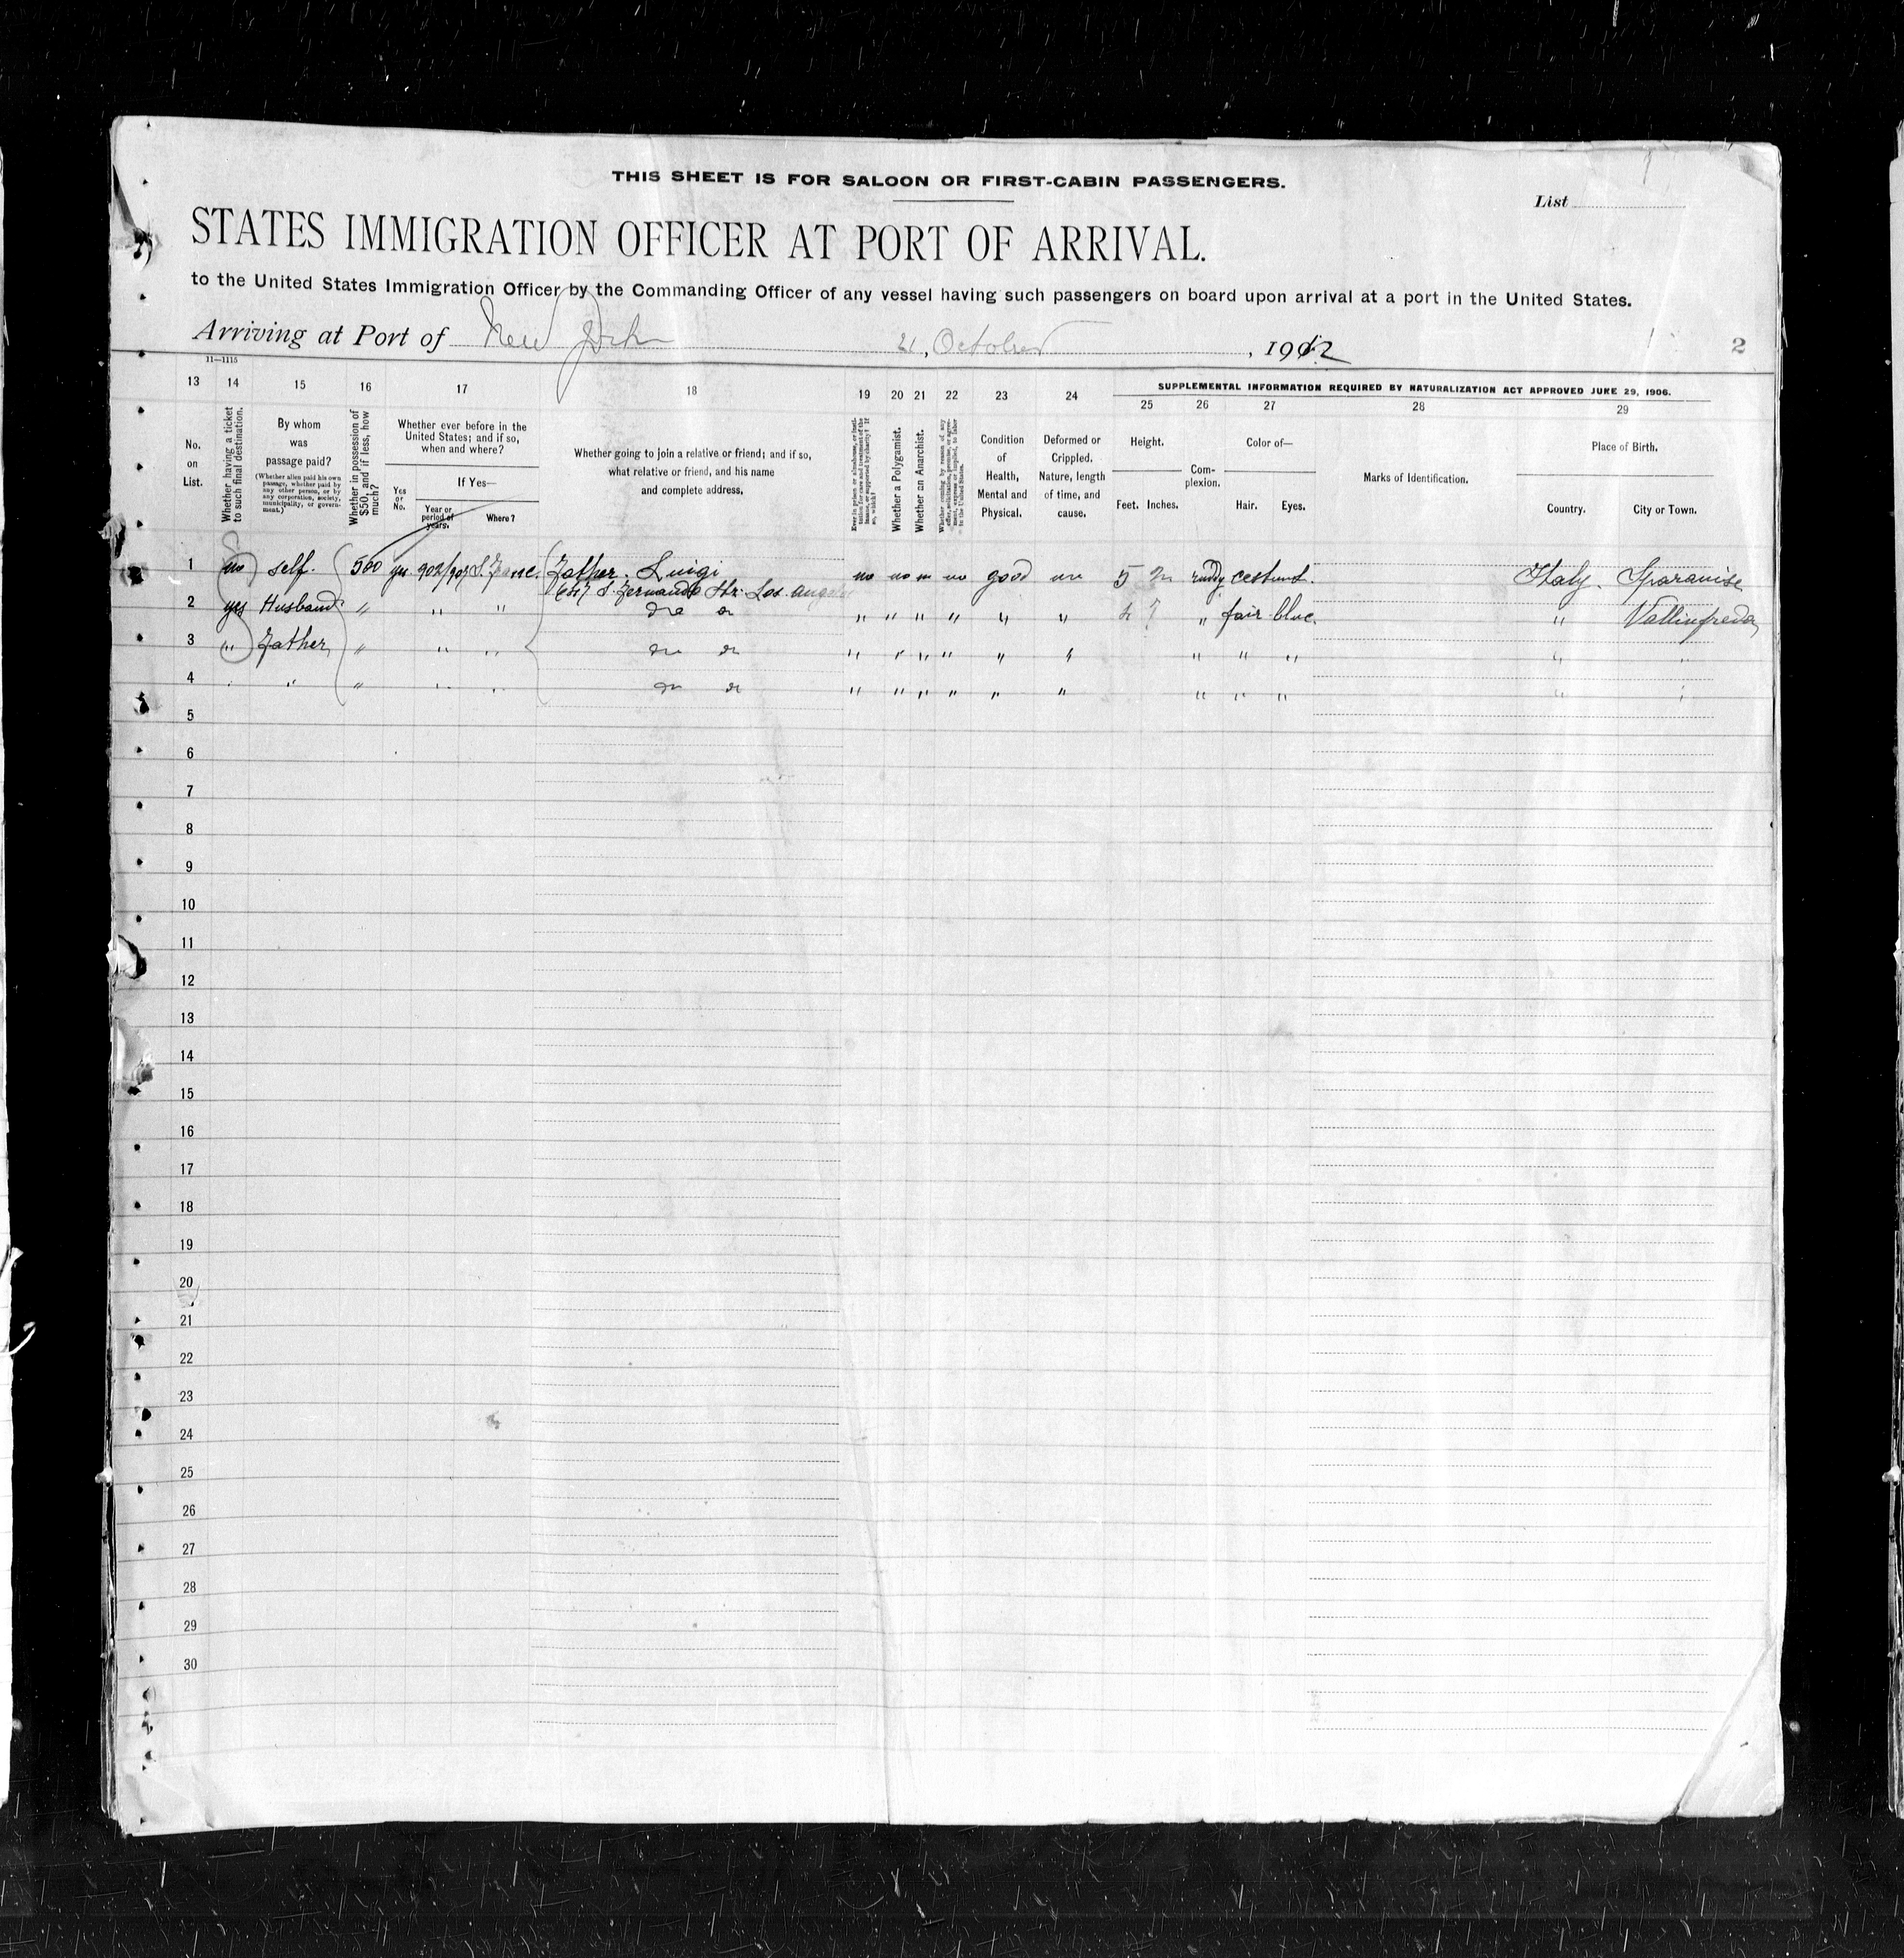 THIS SHEET IS FOR SALOON OR FIRST-CABIN PASSENGERS.
List
STATES IMMIGRATION OFFICER AT PORT OF ARRIVAL.
to the United States Immigration Officer by the Commanding Officer of any vessel having such passengers on board upon arrival at a port in the United States.
Arriving at Port of New York 21, October, 1912
2
11—1115
13 14 15 16 17 18 19 20 21 22 23 24
SUPPLEMENTAL INFORMATION REQUIRED BY NATURALIZATION ACT APPROVED JUNE 29, 1906.
25 26 27 28 29
No. on List.
Whether having a ticket to such final destination.
By whom was passage paid?
(Whether alien paid his own passage, whether paid by any other person, or by any corporation, society, municipality, or government.)
Whether in possession of $50, and if less, how much?
Whether ever before in the United States; and if so, when and where?
Yes or No.
If Yes—
Year or period of years.
Where?
Whether going to join a relative or friend; and if so, what relative or friend, and his name and complete address.
Whether a Polygamist.
Whether an Anarchist.
Condition of Health, Mental and Physical.
Deformed or Crippled. Nature, length of time, and cause.
Height.
Feet. Inches.
Complexion.
Color of—
Hair. Eyes.
Marks of Identification.
Place of Birth.
Country.
City or Town.
1 no self. 500 yes 902/907 S. Franc. Father. Luigi no no no no good no 5 ruddy cestnut. Italy. Sparanise
S. Fernando Str. Los Angeles
2 yes Husband " " " do do " " " " " " 4 7 " fair blue. " Vallinfreda
3 " Father " " " do do " " " " " " " " " " "
4 " " " " " do do " " " " " " " " " " "
5
6
7
8
9
10
11
12
13
14
15
16
17
18
19
20
21
22
23
24
25
26
27
28
29
30